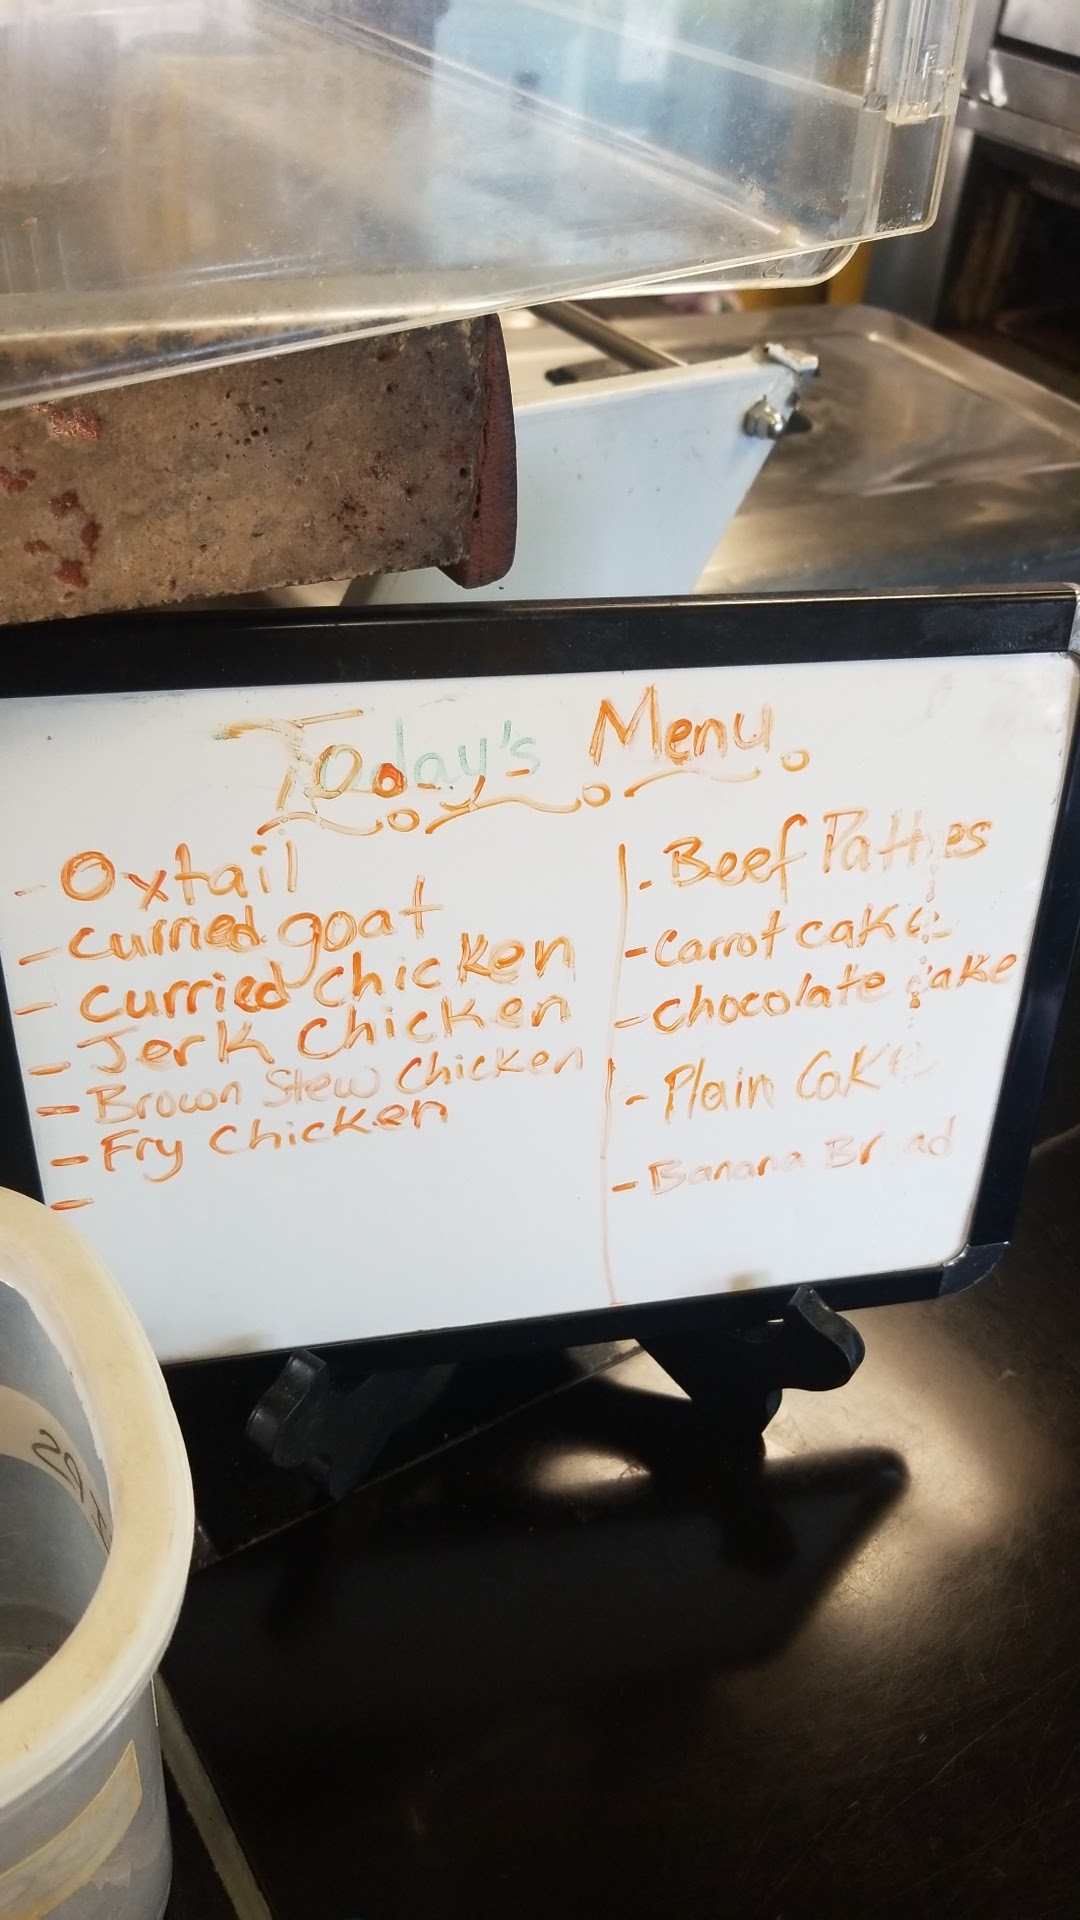 Today's Menu
- Oxtail
- curried goat
- curried chicken
- Jerk Chicken
- Brown Stew Chicken
- Fry Chicken
-
- Beef Patties
- Carrot cake
- Chocolate cake
- Plain Cake
- Banana Bread